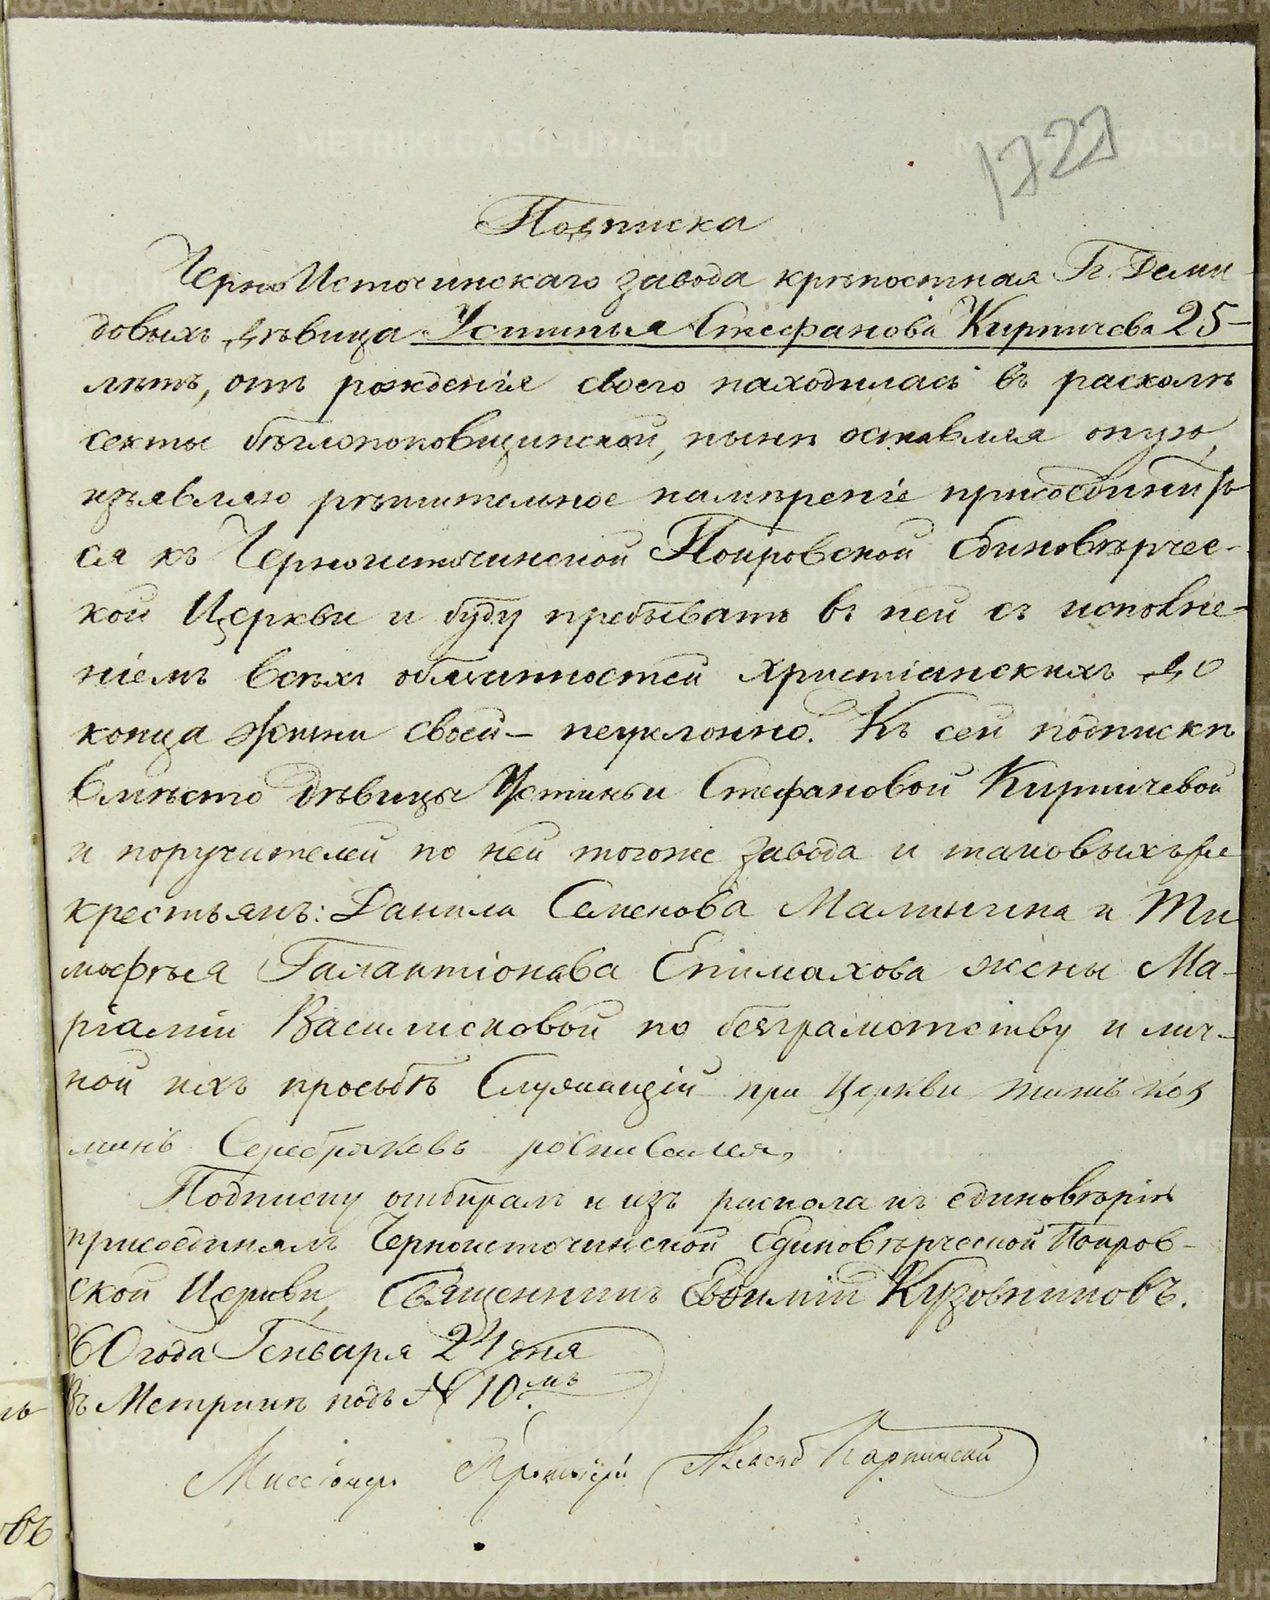 1722
Подписка
Черно Источинскаго завода крѣпостная Гг. Деми-
довыхъ дѣвица Устинья Стефанова Кирпичева 25-
лѣтъ, отъ рожденія своего находилась въ расколѣ
секты бѣглопоповщинской, нынѣ оставляя оную,
изъявляю рѣшительное намѣреніе присоединить-
ся къ Черноисточинской Покровской Единовѣрчес-
кой Церкви и буду пребывать въ ней съ исполне-
ніемъ всѣхъ обязанностей христіанскихъ до
конца жизни своей - неуклонно. Къ сей подпискѣ
вмѣсто дѣвицы Устиньи Стефановой Кирпичевой
и поручителей по ней тогоже завода и таковыхъ же
крестьянъ: Данила Семенова Малыгина и Ти
мофѣя Галактіонова Епимахова жены Ма-
ріамніи Васильевовой по безграмотству и лич-
ной ихъ просьбѣ Служащій при Церкви
Серебряковъ росписался,
Подписку отбиралъ и изъ раскола къ единовѣрію
присоединялъ Черноисточинской Единовѣрческой Покров-
ской Церкви, Священникъ Евѳимій Кузовниковъ.
60 года Генваря 24 дня
Въ Метрикѣ подъ № 10.мъ
Миссіонеръ Протоіерей Карпинскій
METRIKI.GASO-URAL.RU